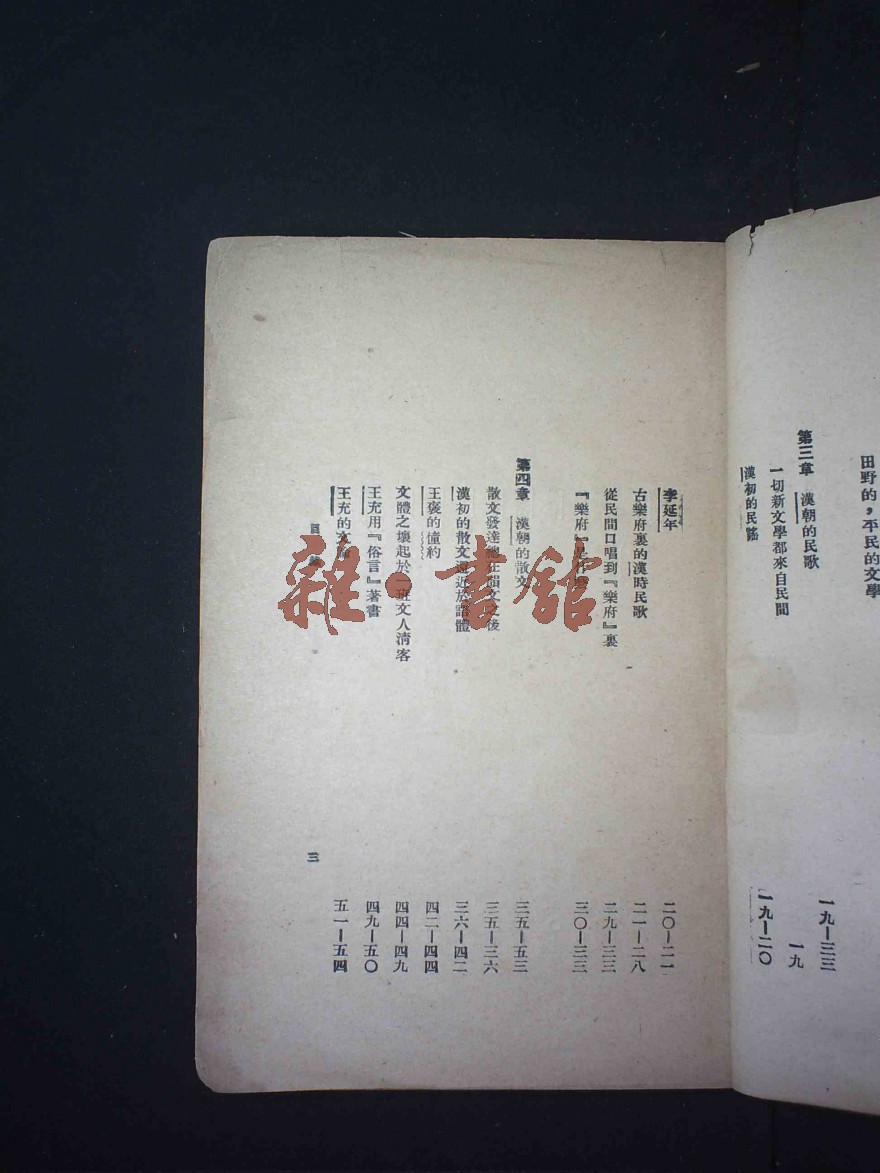 田野的，平民的文學
第三章 漢朝的民歌 一九—三三
一切新文學都來自民間 一九
漢初的民謠 一九—二〇
李延年 二〇—二一
古樂府裏的漢時民歌 二一—二八
從民間口唱到『樂府』裏 二九—三三
『樂府』是 三〇—三三
第四章 漢朝的散文 三五—五三
散文發達總在韻文之後 三五—三六
漢初的散文還近於語體 三六—四二
王褒的僮約 四二—四四
文體之壞起於一班文人清客 四四—四九
王充用『俗言』著書 四九—五〇
王充的文論 五一—五四
目
三
雜·書館